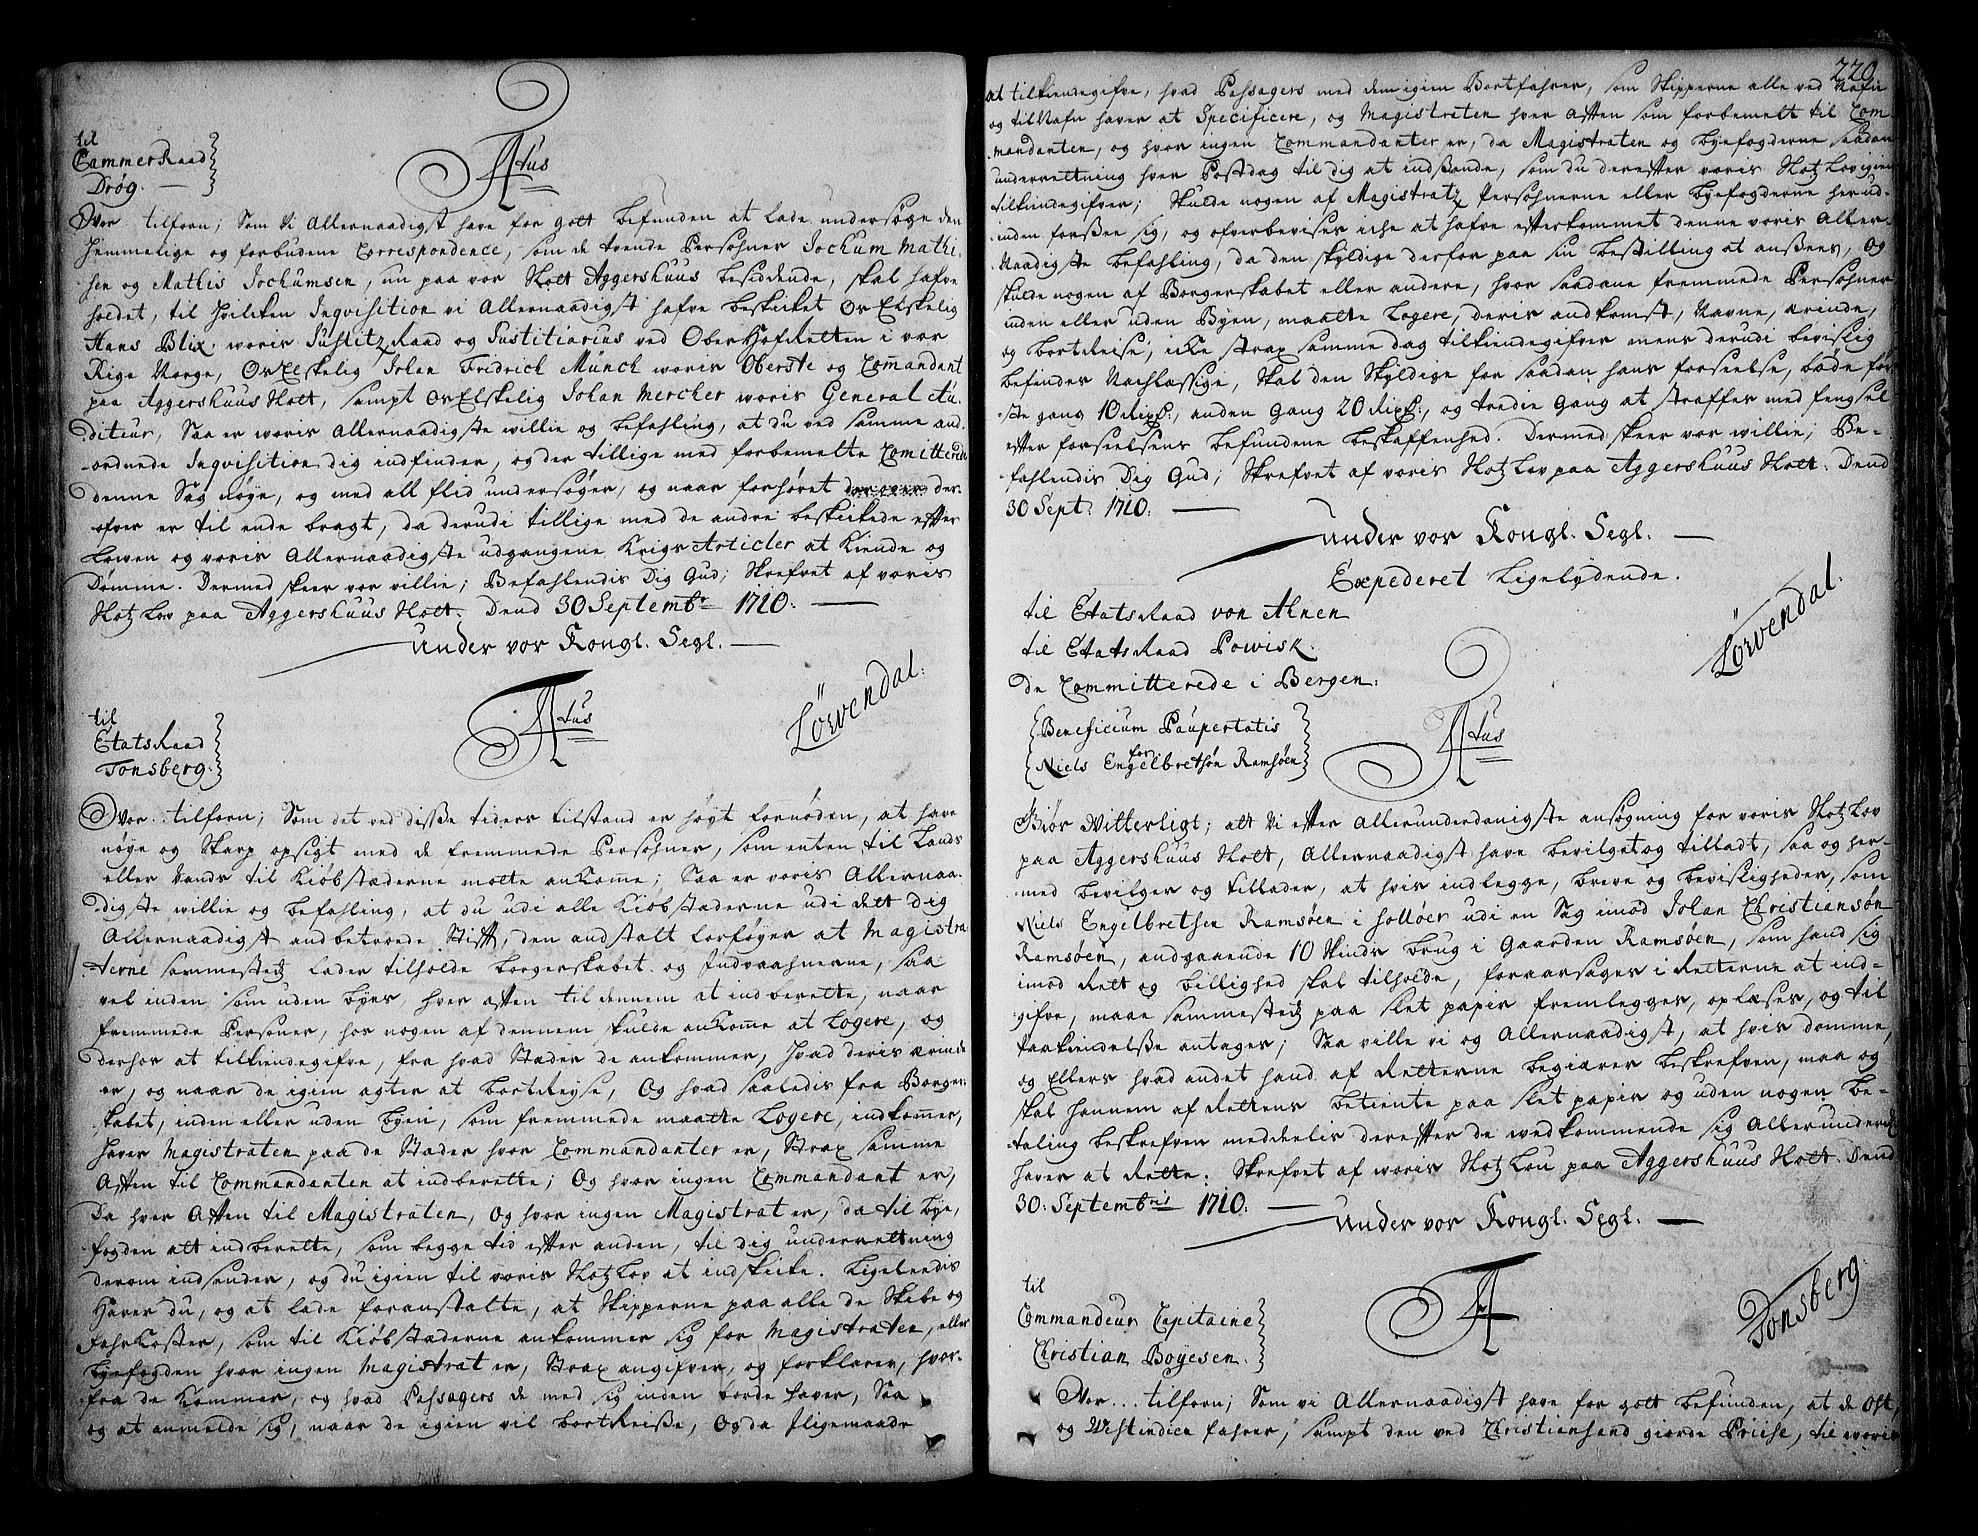 til
CammerRaad
Drøg. —
Atus
Vor tilforn; Som Vi Allernaadigst have for godt befunden at lade undersøge den
hemmelige og forbudene Correspondence, som de tvende Persohner Jochum Mathi-
sen og Mathis Jochumsen, nu paa vor Slott Aggershuus besiddende, skal hafve
holdet, til hvilcken Inqvisition vi Allernaadigst hafve beskicket Os Elskelig
Hans Blix voris JustitzRaad og Justitiarius ved OberHofRetten i vor
Rige Norge, Os Elskelig Johan Fridrich Münch voris Oberste og Commandant
paa Aggershuus Slott, sampt Os Elskelig Johan Mercher voris General Au-
diteur, Saa er voris Allernaadigste willie og befahling, at du ved samme an-
ordnede Inqvisition dig indfinder, og der tillige med forbemelte Comitterede
denne Sag nøye, og med all flid undersøger, og naar forhøret der-
ofver er til ende bragt, da derudi tillige med de andre beskickede efter
Lowen og voris Allernaadigste udgangene Krigs Articler at Kiende og
Dømme. Dermed skeer vor villie; Befahlendis Dig Gud; Skrefvet af voris
Slotz Lov paa Aggershuus Slott. Dend 30 Septembr 1710. —
under vor Kongl. Segl. —
Løvendal.
til
EtatsRaad
Tonsberg.
Atus
Vor .. tilforn; Som det ved disse tiders tilstand er høyt fornøden, at have
nøye og skarp opsigt med de fremmede Persohner, som enten til Lands
eller Vands til Kiøbstæderne motte ankome; Saa er voris Allernaa-
digste willie og befahling, at du udi alle Kiøbstæderne udi det Dig
Allernaadigst anbetroede Stift, den anstalt forføyer at Magistra-
terne sammestedz lader tilholde borgerskabet og Indvaanerne, saa
vel inden som uden byes, hver aften til dennem at indberette, naar
fremmede Personer, hos nogen af dennem skulde ankome at Logere, og
derhos at tilkiendegifve, fra hvad Stæder de ankommer, hvad deris ærinde
er, og naar de igien agter at bortreyse, Og hvad saaledis fra Borger-
skabet, inden eller uden byen, som fremmede maatte Logere, indkomer,
haver Magistraten paa de Stæder hvor Commandanter er, Strax samme
Aften til Commandanten at indberette; Og hvor ingen Commandant er,
Da hver Aften til Magistraten, og hvor ingen Magistrat er, da til bye-
fogden alt indberette, som begge tid efter anden, til dig underrettning
derom indsender, og du igien til voris Slotz Lov at indskicke. Ligeledis
Haver du, og at lade foranstalte, at Skipperne paa alle de Skibe og
Fahrkoster, som til Kiøbstæderne ankommer sig for Magistraten, eller
byefogden hvor ingen Magistrat er, Strax angifver, og forklarer, hvor-
fra de kommer, og hvad Passagers de med sig inden borde haver, Saa
og at anmelde sig, naar de igien vil bortreise, Og da ligemaade
220
at tilkiendegifve, hvad Passagers med dem igien Bortfahrer, som Skipperne alle ved Nafn
og tilNafn haver at Specificere, og Magistraten hver Aften som forbemelt til Com-
mandanten, og hvor ingen Commandanter er, da Magistraten og byefogderne saadan
underrettning hver Postdag til dig at indsende, som du derefter voris Slotz Lov igien
tilkiendegifver; Skulde nogen af Magistratz Persohnerne eller byefogderne herud-
inden forsee sig, og ofverbevises icke at hafve efterkommet denne voris Aller-
Naadigste befahling, da den skyldige derfor paa sin bestilling at ansees, Og
skulde nogen af Borgerskabet eller andere, hvor saadane fremmede Persohner
inden eller uden Byen, maatte Logere, deris ankomst, Navne, ærinde,
og bortReise, icke strax samme dag tilkiendegifver mens derudi bevislig
befindes Nachlæssige, Skal den Skyldige for saadan hans forseelse, bøde før-
ste gang 10 Rixd., anden Gang 20 Rixd., og tredie Gang at straffes med fengsel
efter forseelsens befundene beskaffenhed. Dermed skeer vor willie; Be-
fahlendis Dig Gud; Skrefvet af voris Slotz Lov paa Aggershuus Slott. Dend
30 Sept. 1710. —
under vor Kongl. Segl. —
Expederet Ligelydende.
til EtatsRaad von Ahnen
til EtatsRaad Powisk.
de Committerede i Bergen.
Løvendal.
Beneficium Paupertatis
for
Niels Engelbretsøn Ramsøen
Atus
Giør Witterligt; att Vi efter Allerunderdanigste ansøgning for voris Slotz Lov
paa Aggershuus Slott, Allernaadigst have bevilget og tilladt, saa og her-
med bevilger og tillader, at hvis indlegge, breve og bevisligheder, som
Niels Engelbretsen Ramsøen i Solløer udi en Sag imod Johan Christiansøn
Ramsøen, angaaende 10 Skinds brug i Gaarden Ramsøen, som hand sig
imod Rett og billighed skal tilholde, foraarsages i Retterne at ind-
gifve, maae sammestedz paa slet papir fremlegges, oplæses, og til
Paakiendelse antages; Saa ville vi og Allernaadigst, at hvis domme,
og Ellers hvad andet hand af Retterne begiærer beskrefven, maa og
skal hannem af Rettens betiente paa slet papir og uden nogen be-
taling beskrefven meddeelis derefter de wedkommende sig Allerunderd.
haver at Rette. Skrefvet af woris Slotz Lou paa Aggershuus Slott. Dend
30. Septembris 1710. —
Under vor Kongl. Segl. —
Tonsberg.
til
Commandeur Capitaine
Christian Boyesen.
A
Vor ... tilforn; Som vi Allernaadigst have for godt befunden, at de Ost,
og Westindien fahrer, sampt den ved Christiansand giorde Priese, til woris